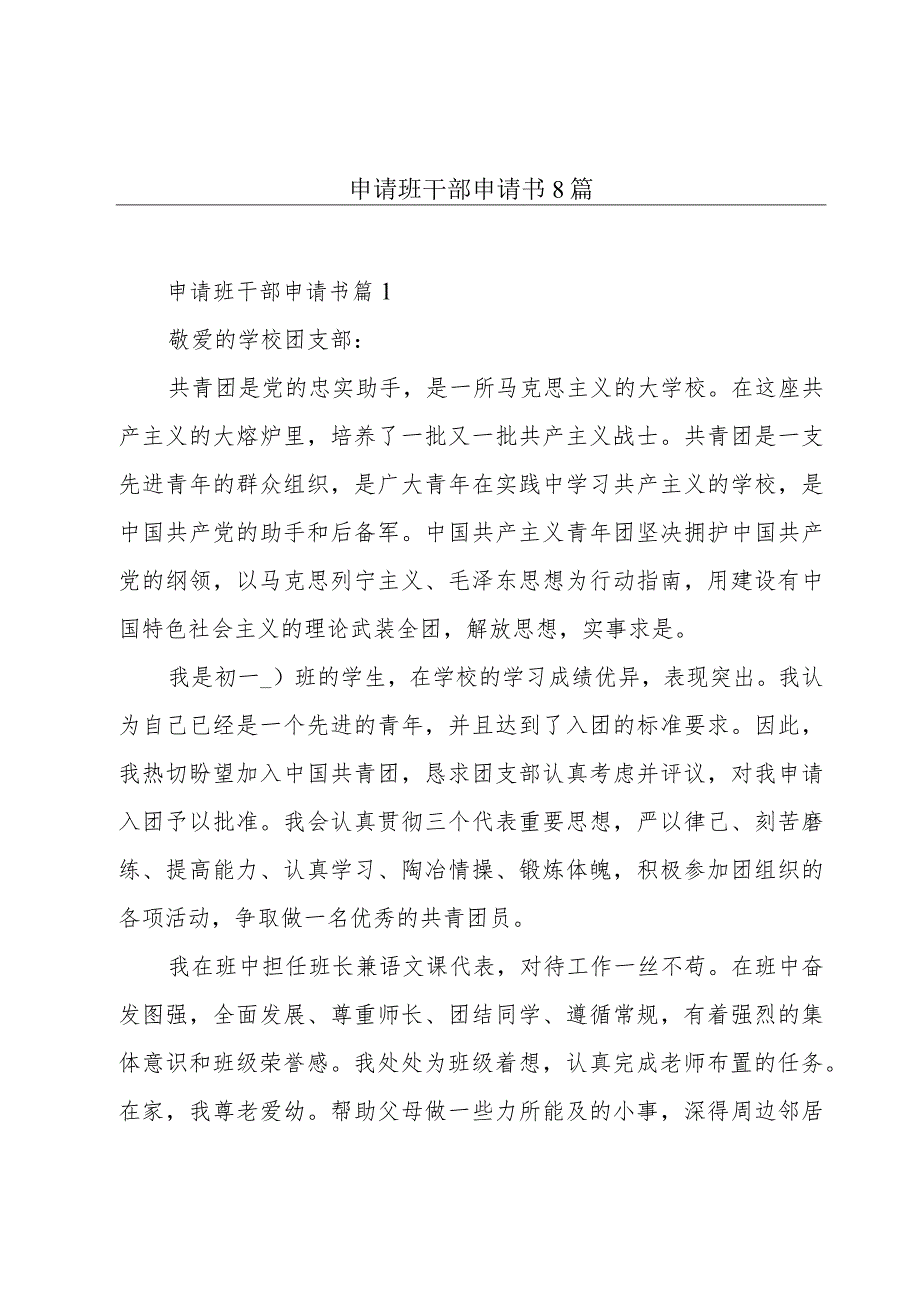 申请班干部申请书 8 篇
申请班干部申请书篇 1
敬爱的学校团支部：
共青团是党的忠实助手，是一所马克思主义的大学校。在这座共
产主义的大熔炉里，培养了一批又一批共产主义战士。共青团是一支
先进青年的群众组织，是广大青年在实践中学习共产主义的学校，是
中国共产党的助手和后备军。中国共产主义青年团坚决拥护中国共产
党的纲领，以马克思列宁主义、毛泽东思想为行动指南，用建设有中
国特色社会主义的理论武装全团，解放思想，实事求是。
我是初一_）班的学生，在学校的学习成绩优异，表现突出。我认
为自己已经是一个先进的青年，并且达到了入团的标准要求。因此，
我热切盼望加入中国共青团，恳求团支部认真考虑并评议，对我申请
入团予以批准。我会认真贯彻三个代表重要思想，严以律己、刻苦磨
练、提高能力、认真学习、陶冶情操、锻炼体魄，积极参加团组织的
各项活动，争取做一名优秀的共青团员。
我在班中担任班长兼语文课代表，对待工作一丝不苟。在班中奋
发图强，全面发展、尊重师长、团结同学、遵循常规，有着强烈的集
体意识和班级荣誉感。我处处为班级着想，认真完成老师布置的任务。
在家，我尊老爱幼。帮助父母做一些力所能及的小事，深得周边邻居